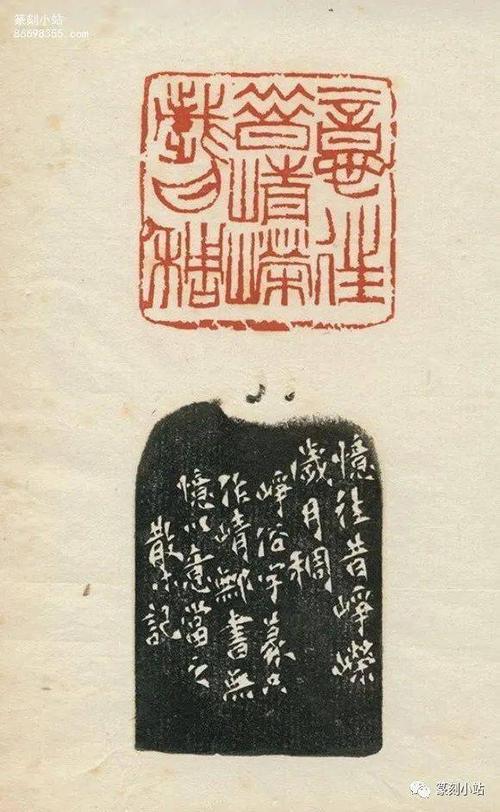 篆刻小站
86698355.com
意往
昔崝嶸
歲月稠
憶往昔崢嶸
歲月稠
崢俗字篆只
作崝鄦書無
憶以意當之
散木記
篆刻小站